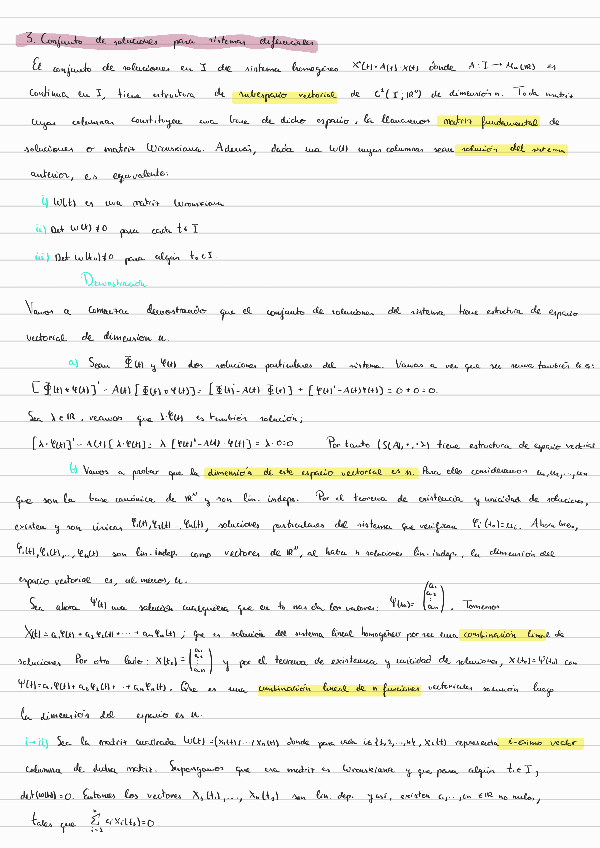 3. Conjunto de soluciones para sistemas diferenciales
El conjunto de soluciones en I del sistema homogéneo X'(t)=A(t)·X(t) donde A: I → Mn(IR) es
continua en I, tiene estructura de subespacio vectorial de C¹(I; IRⁿ) de dimensión n. Toda matriz
cuyas columnas constituyen una base de dicho espacio, la llamaremos matriz fundamental de
soluciones o matriz Wronskiana. Además, dada una W(t) cuyas columnas sean solución del sistema
anterior, es equivalente:
i) W(t) es una matriz Wronskiana
ii) Det W(t) ≠ 0 para cada t ∈ I
iii) Det W(t₀) ≠ 0 para algún t₀ ∈ I.
Demostración
Vamos a comenzar demostrando que el conjunto de soluciones del sistema tiene estructura de espacio
vectorial de dimensión n.
a) Sean Φ(t) y Ψ(t) dos soluciones particulares del sistema. Vamos a ver que su suma también lo es:
[Φ(t)+Ψ(t)]' - A(t)[Φ(t)+Ψ(t)] = [Φ(t)' - A(t)·Φ(t)] + [Ψ(t)' - A(t)Ψ(t)] = 0 + 0 = 0.
Sea λ ∈ IR, veamos que λ·Ψ(t) es también solución;
[λ·Ψ(t)]' - A(t)[λ·Ψ(t)] = λ[Ψ(t)' - A(t)·Ψ(t)] = λ·0 = 0 Por tanto (S(A), +, ·λ) tiene estructura de espacio vectorial
b) Vamos a probar que la dimensión de este espacio vectorial es n. Para ello consideramos u₁, u₂, ..., un
que son la base canónica de IRⁿ y son lin. indep. Por el teorema de existencia y unicidad de soluciones,
existen y son únicas φ₁(t), φ₂(t)...φn(t), soluciones particulares del sistema que verifican φi(t₀)=ui. Ahora bien,
φ₁(t), φ₂(t), ..., φn(t) son lin. indep. como vectores de IRⁿ, al haber n soluciones lin. indep., la dimensión del
espacio vectorial es, al menos, n.
Sea ahora Ψ(t) una solución cualquiera que en t₀ nos da los valores: Ψ(t₀) = (a₁ a₂ ⋮ an). Tomemos
X(t) = a₁φ₁(t) + a₂φ₂(t) + ··· + anφn(t); que es solución del sistema lineal homogéneo por ser una combinación lineal de
soluciones Por otro lado: X(t₀) = (a₁ a₂ ⋮ an) y por el teorema de existencia y unicidad de soluciones, X(t₀) = Ψ(t₀) con
Ψ(t) = a₁φ₁(t) + a₂φ₂(t) + ··· + anφn(t). Que es una combinación lineal de n funciones vectoriales solución luego
la dimensión del espacio es n.
i → ii) Sea la matriz cuadrada W(t) = (X₁(t), ..., Xn(t)) donde para cada i ∈ {1, 2, ..., n}, Xi(t) representa i-ésimo vector
columna de dicha matriz. Supongamos que esa matriz es Wronskiana y que para algún t₁ ∈ I,
det(W(t₁)) = 0. Entonces los vectores X₁(t₁), ..., Xn(t₁) son lin. dep. y así, existen c₁, ..., cn ∈ IR no nulos,
tales que Σ ci Xi(t₁) = 0